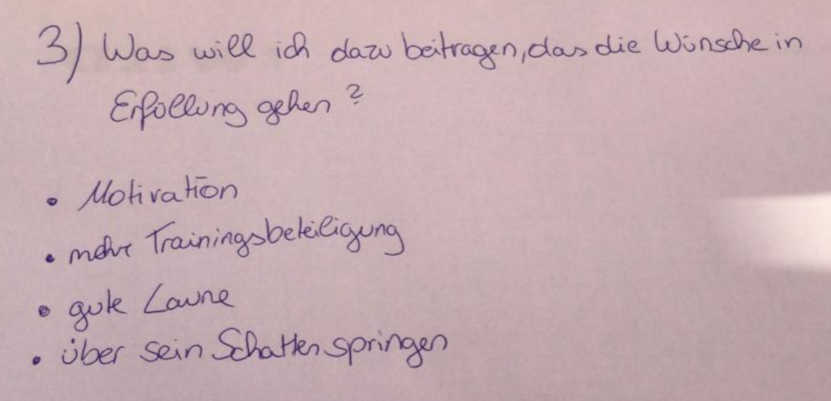 3) Was will ich dazu beitragen, das die Wünsche in
Erfüllung gehen?
• Motivation
• mehr Trainingsbeteiligung
• gute Laune
• über sein Schatten springen